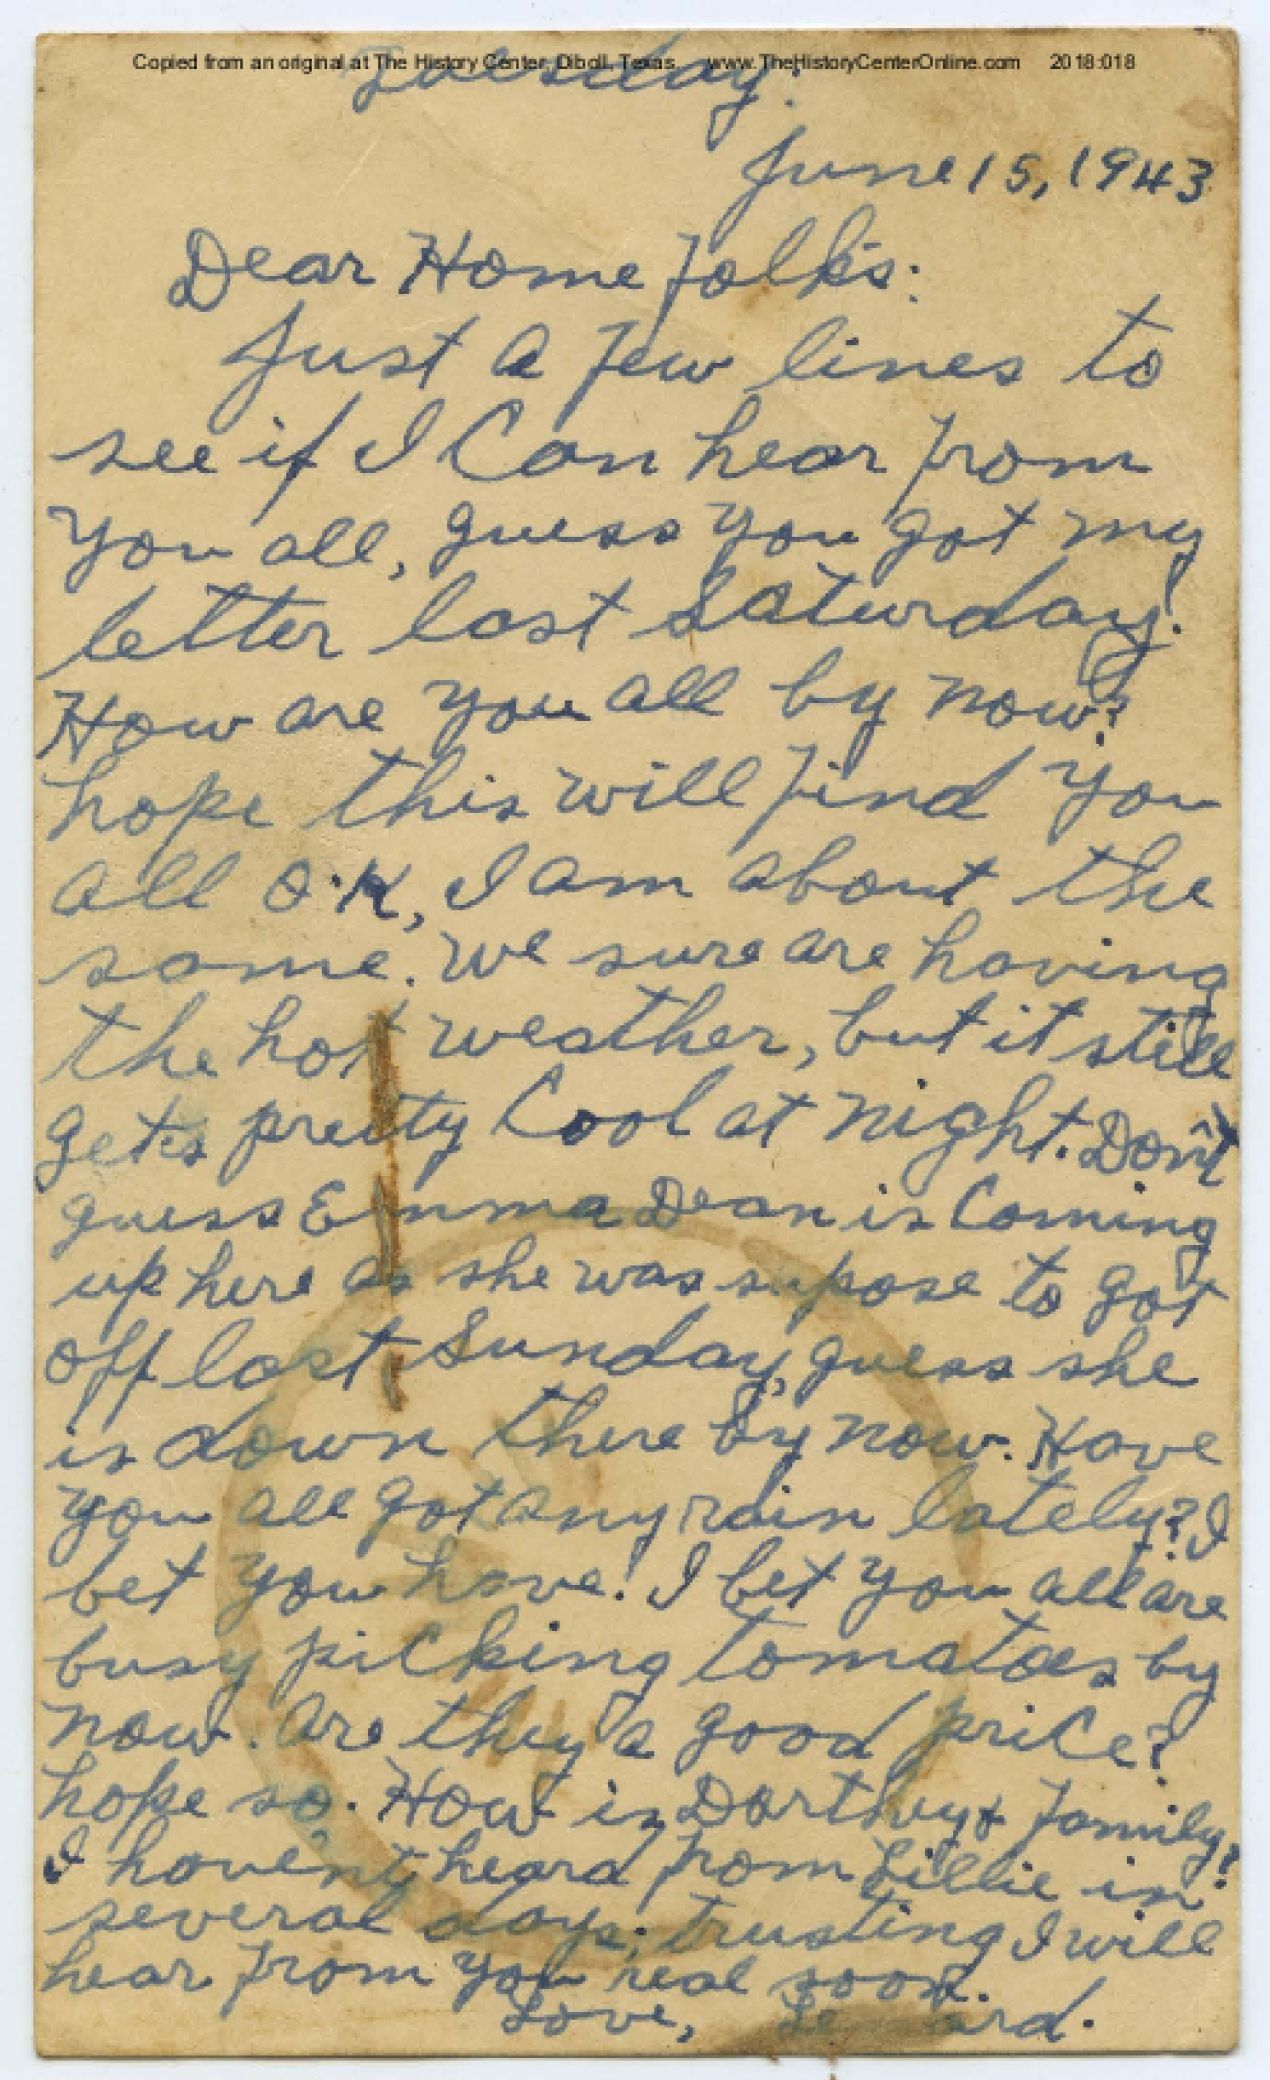 Copied from an original at The History Center, Diboll, Texas. www.TheHistoryCenterOnline.com 2018:018
Tuesday.
June 15, 1943
Dear Home folks:
Just a few lines to
see if I Can hear from
you all, guess you got my
letter last Saturday!
How are you all by now?
hope this will find you
all O.K, I am about the
same. We sure are having
the hot weather, but it still
gets pretty Cool at night. Don't
guess Emma Dean is Coming
up here as she was supose to got
off last Sunday, guess she
is down there by now. Have
you all got any rain lately? I
bet you have! I bet you all are
busy picking tomatoes by
now. are they a good price?
hope so. How is Dorthy & family?
I haven't heard from Lillie in
several days; trusting I will
hear from you real soon.
Love,